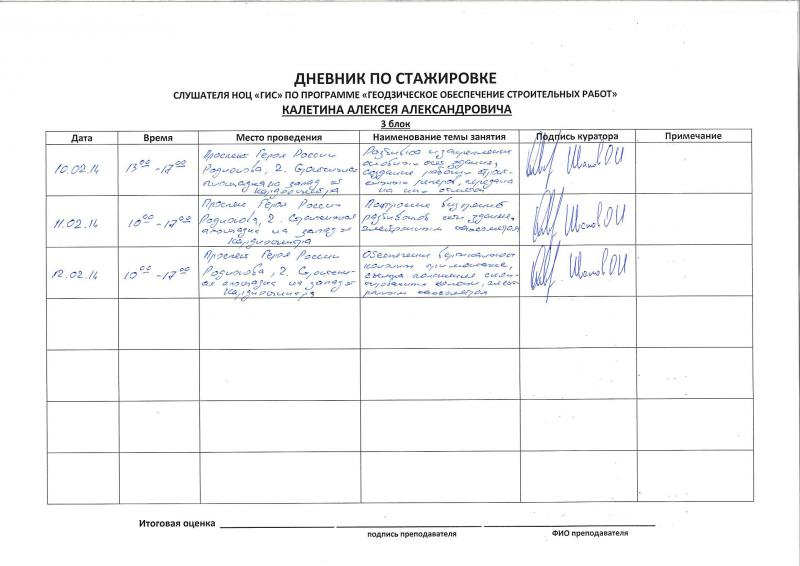 ДНЕВНИК ПО СТАЖИРОВКЕ
СЛУШАТЕЛЯ НОЦ «ГИС» ПО ПРОГРАММЕ «ГЕОДЗИЧЕСКОЕ ОБЕСПЕЧЕНИЕ СТРОИТЕЛЬНЫХ РАБОТ»
КАЛЕТИНА АЛЕКСЕЯ АЛЕКСАНДРОВИЧА
3 блок
Дата Время Место проведения Наименование темы занятия Подпись куратора Примечание
10.02.14 13 00 - 17 00
Проспект Героя России
Родионова, 2. Строительная
площадка на запад от
Кардиоцентра
Разбивка и закрепление
основных осей здания,
создание рабочих строи-
тельных реперов, передача
на них отметок
Шамов ОИ
11.02.14 10 00 - 17 00
Проспект Героя России
Родионова, 2. Строительная
площадка на запад от
Кардиоцентра
Построение внутренней
разбивочной сети здания,
электронным тахеометром
Шамов ОИ
12.02.14 10 00 - 17 00
Проспект Героя России
Родионова, 2. Строитель-
ная площадка на запад от
Кардиоцентра
Обеспечение вертикальности
колонн при монтаже,
съемка положения смон-
тированных колонн, элект-
ронным тахеометром
Шамов ОИ
Итоговая оценка
подпись преподавателя ФИО преподавателя